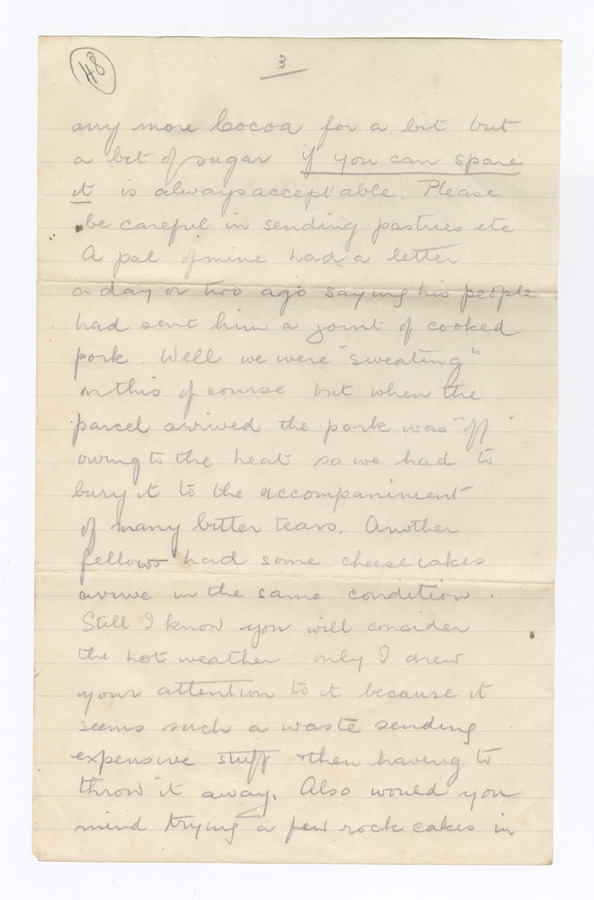 48
3
any more Cocoa for a bit but
a bit of sugar if you can spare
it is always acceptable. Please
be careful in sending pastries etc
A pal of mine had a letter
a day or two ago saying his people
had sent him a joint of cooked
pork. Well we were "sweating"
on this of course but when the
parcel arrived the pork was "off"
owing to the heat so we had to
bury it to the accompaniment
of many bitter tears. Another
fellow had some cheesecakes
arrive in the same condition.
Still I know you will consider
the hot weather only I drew
your attention to it because it
seems such a waste sending
expensive stuff & then having to
throw it away. Also would you
mind trying a few rock cakes in